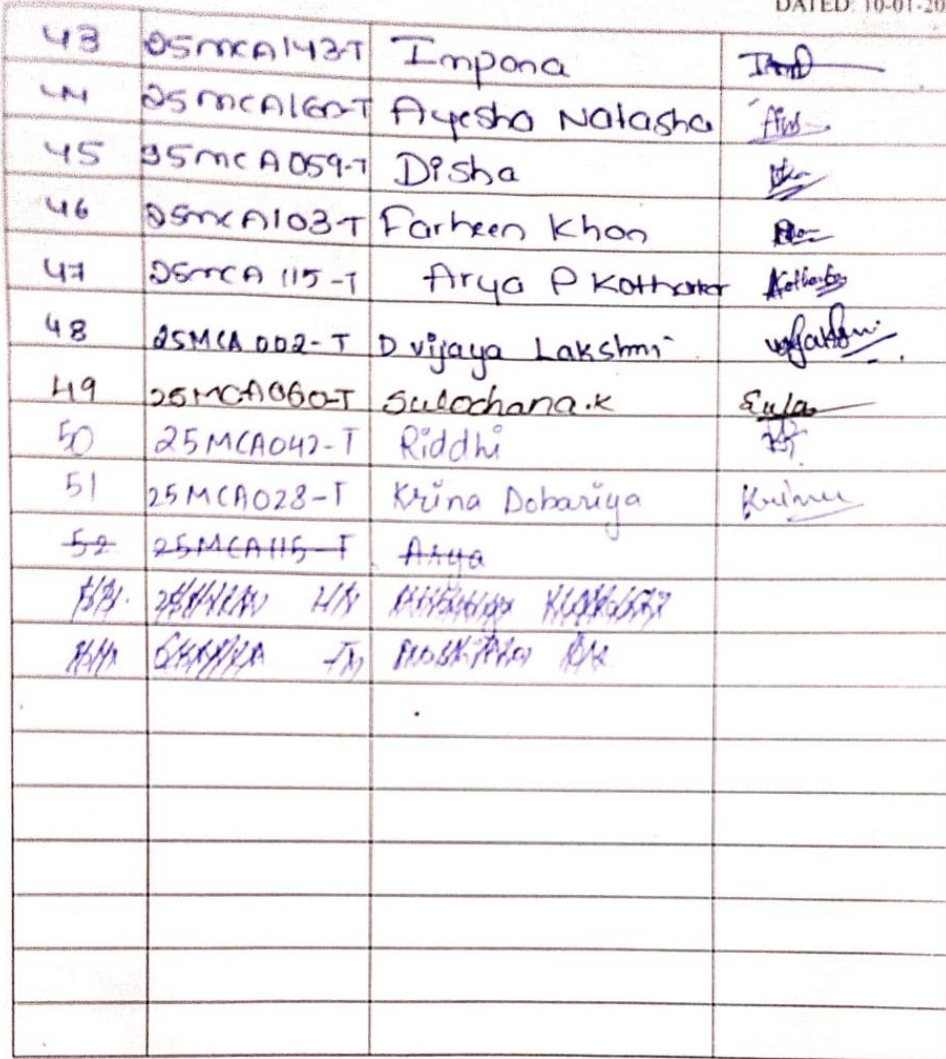 DATED: 10-01-20
43 25MCA143-T Impana
44 25MCA160-T Ayesha Natasha
45 25MCA059-T Disha
46 25MCA103-T Farheen Khan
47 25MCA 115-T Arya P Kotharkar
48 25MCA 002-T D vijaya Lakshmi
49 25MCA060-T Sulochana.K Sula
50 25MCA042-T Riddhi
51 25MCA028-T Krina Dobariya
52 25MCA115-T Arya